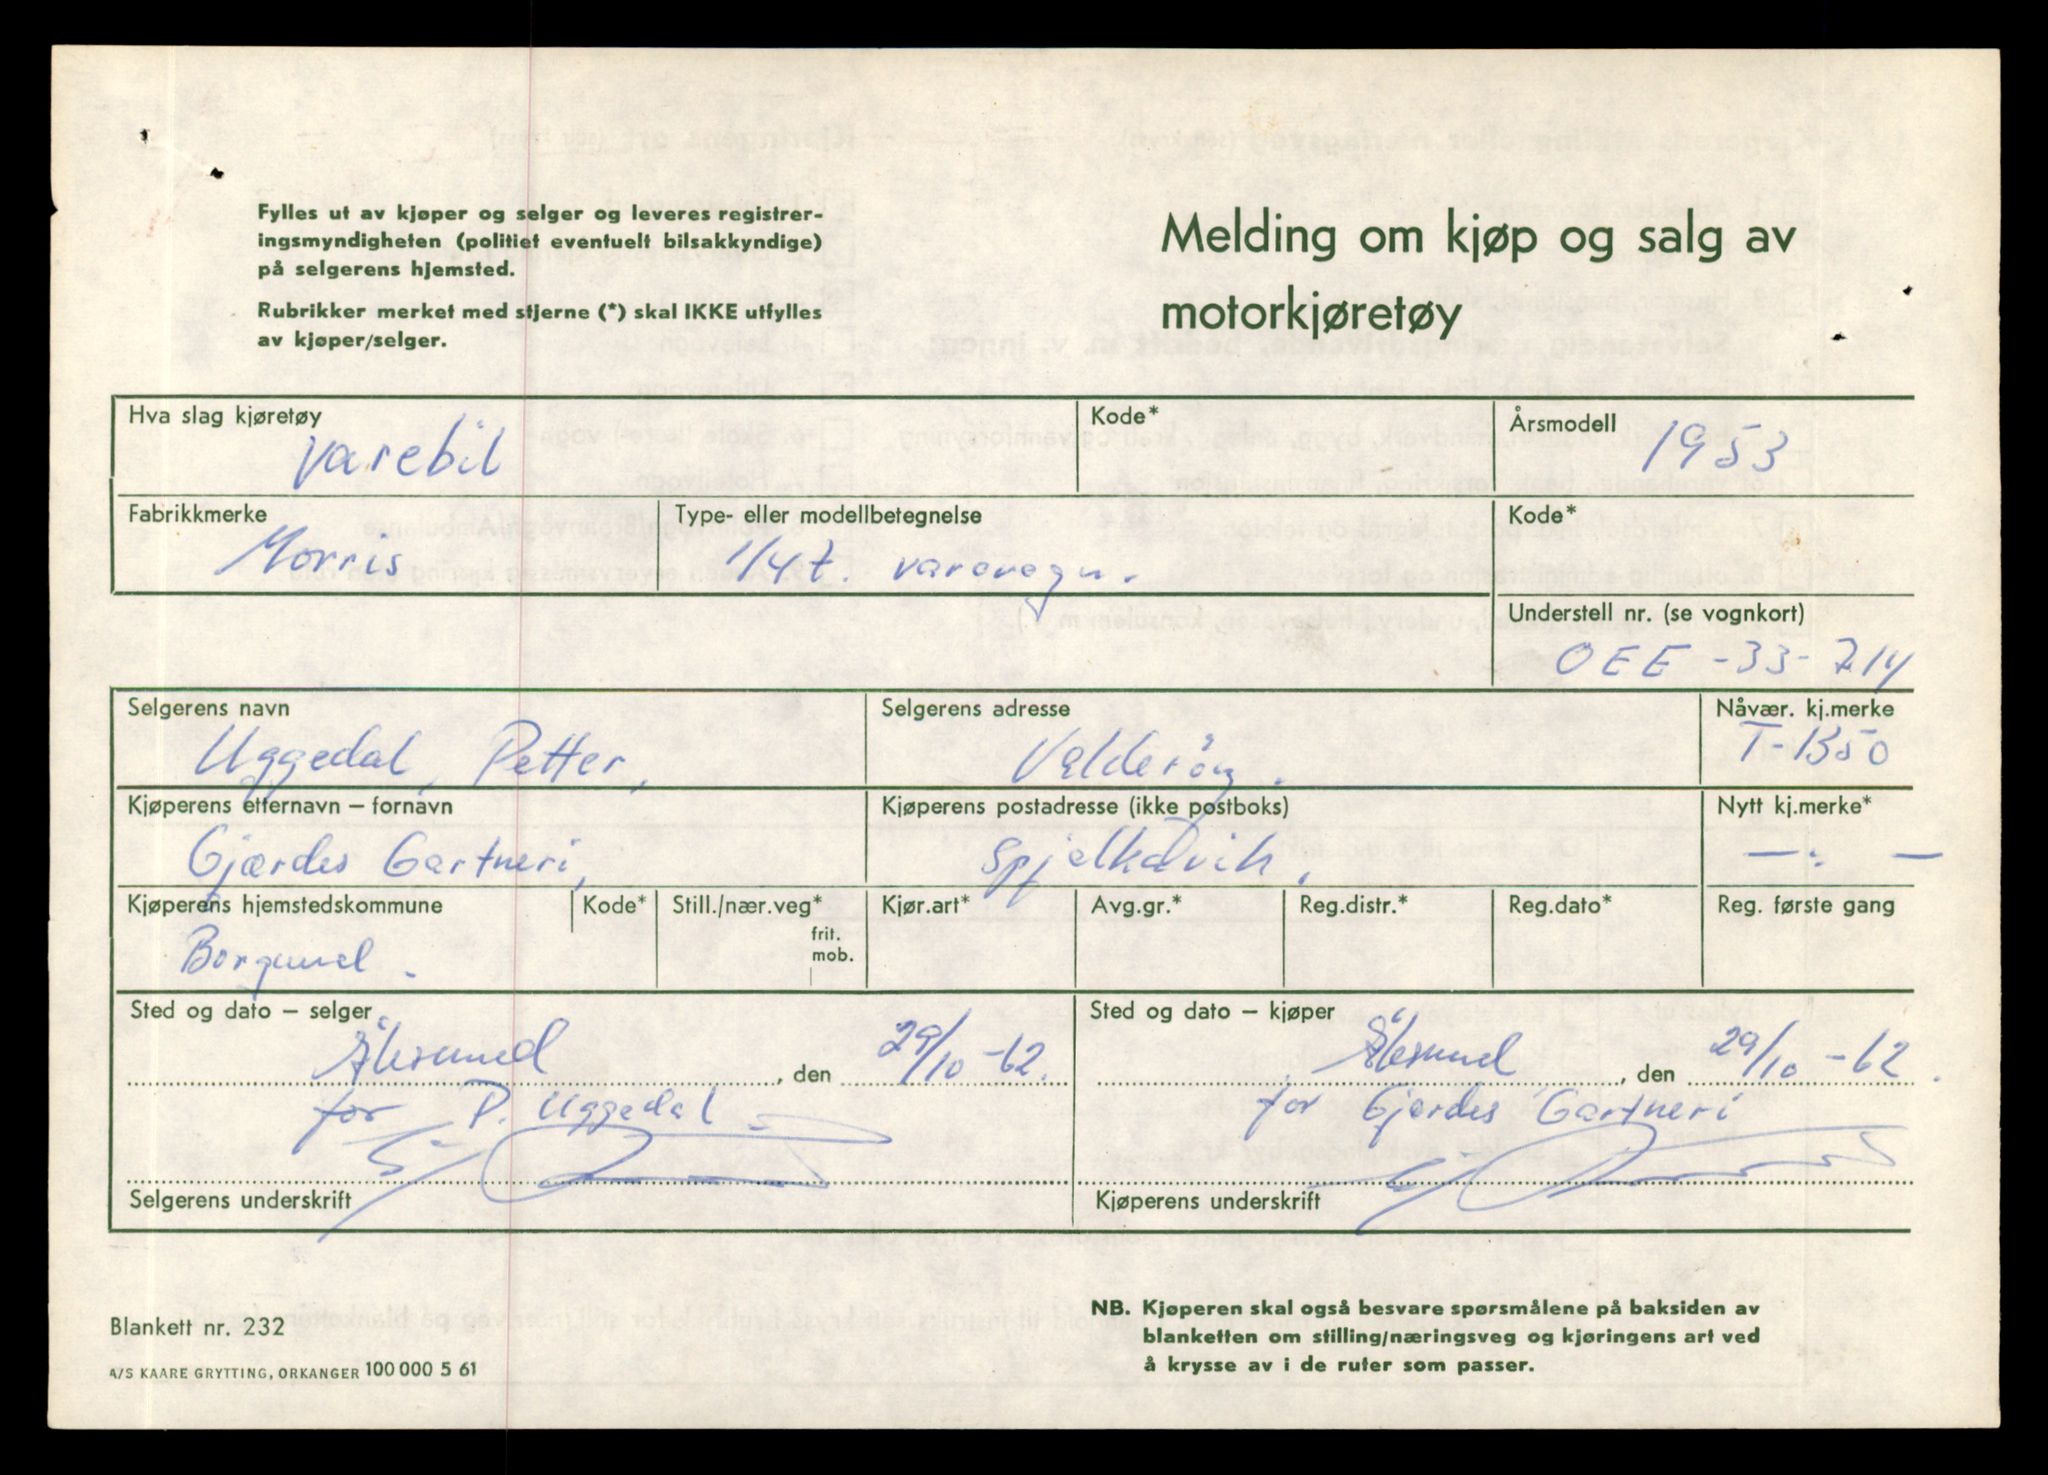 Fylles ut av kjøper og selger og leveres registrer-
ingsmyndigheten (politiet eventuelt bilsakkyndige)
på selgerens hjemsted.
Rubrikker merket med stjerne (*) skal IKKE utfylles
av kjøper/selger.
Melding om kjøp og salg av
motorkjøretøy
Hva slag kjøretøy
Varebil
Kode*
Årsmodell
1953
Fabrikkmerke
Morris
Type- eller modellbetegnelse
1/4 t. varevogn.
Kode*
Understell nr. (se vognkort)
OEE -33- 714
Selgerens navn
Uggedal, Petter,
Selgerens adresse
Valderöy.
Nåvær. kj.merke
T-1350
Kjøperens etternavn – fornavn
Gjærdes Gartneri,
Kjøperens postadresse (ikke postboks)
Spjelkavik,
Nytt kj.merke*
— : —
Kjøperens hjemstedskommune
Borgund.
Kode*
Still./nær.veg*
frit.
mob.
Kjør.art*
Avg.gr.*
Reg.distr.*
Reg.dato*
Reg. første gang
Sted og dato – selger
Ålesund, den 29/10 -62.
for P. Uggedal
Selgerens underskrift
Sted og dato – kjøper
Ålesund, den 29/10 -62.
for Gjærdes Gartneri
Kjøperens underskrift
Blankett nr. 232
A/S KAARE GRYTTING, ORKANGER 100 000 5 61
NB. Kjøperen skal også besvare spørsmålene på baksiden av
blanketten om stilling/næringsveg og kjøringens art ved
å krysse av i de ruter som passer.